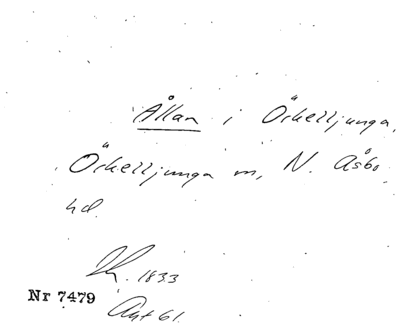 Ållan i Örkelljunga,
Örkelljunga sn, N. Åsbo
hd.
1833
Nr 7479
Akt 61.